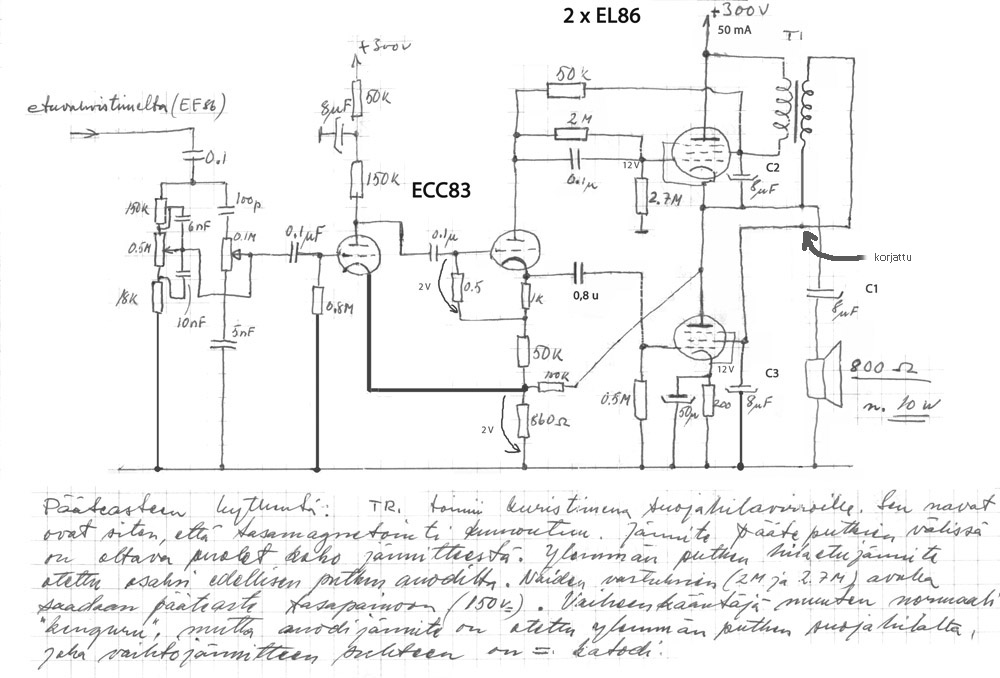 2 x EL86
+300V
50 mA
T1
+300V
50K
8µF
etuvahvistimelta (EF86)
50K
2M
0.1
150K
ECC83
12V
0.1µ
C2
8µF
2.7M
150K
100p
6nF
0.5M
0.1M
0.1µF
0.1µ
korjattu
18K
10nF
0.8M
2V
0.5
1K
0,8 u
C1
8µF
5nF
50K
12V
100K
C3
800 Ω
0.5M
50µ
200
8µF
n. 10 W
2V
860Ω
Pääteasteen kytkentä: TR. toimii kuristimena suojahilavirroille. Sen navat
ovat siten, että tasamagnetointi kumoutuu. Jännite pääteputkien välissä
on oltava puolet koko jännitteestä. Ylemmän putken hilaetujännite
otettu osaksi edellisen putken anodilta. Näiden vastuksien (2M ja 2.7M) avulla
saadaan pääteaste tasapainoon (150V=). Vaiheenkääntäjä muuten normaali
"kenguru", mutta anodijännite on otettu ylemmän putken suojahilalta,
joka vaihtojännitteen suhteen on = katodi.